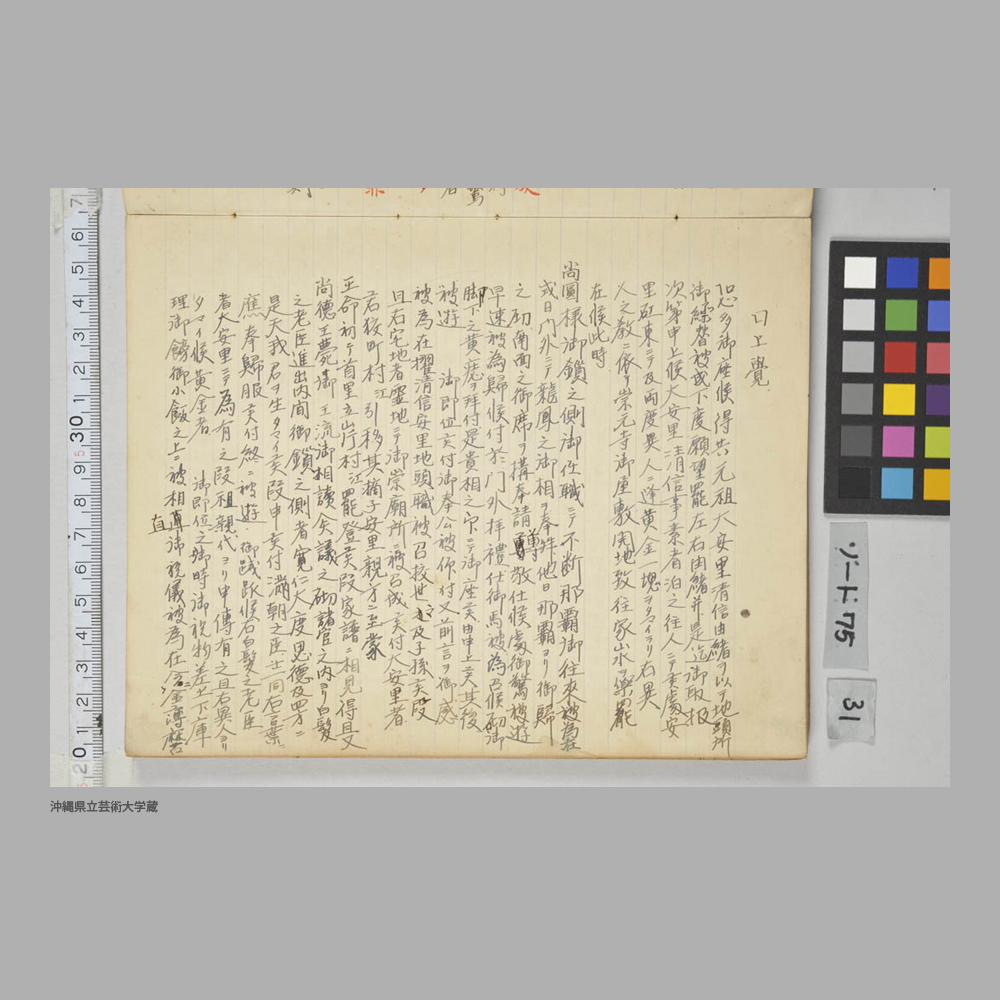 口上覺
多御座候得共元祖大安里清信由緒ヲ以テ地頭所
御繼替被成下度願望罷左右由緒并是迄御取扱
次第申上候大安里清信事素者泊之住人ニテ
里ニテ及両度異人ニ逢黄金一塊ヲタマイラリ右異
人之教ニ依リ崇元寺御座敷
在候此時
尚圓様御鎖之側御仕職ニテ不断那覇御往来被為
或日門外ニテ龍鳳之御相ヲ奉拝他日那覇ヨリ御歸
之砌南面之御席ヲ構奉請敬仕候處御驚被遊
早速被為歸候付於門外拝禮仕御馬被為召候砌御
脚下之黄痣ヲ拝付是貴相之ニテ御座由申上其後
被遊 御即位付御奉公被仰付又前言ヲ御感
被為在擢清信安里地頭職被召授世々及子孫段
且右宅地者靈地ニテ御崇廟所ニ被召成付大安里者
若狹町村江引移其嫡子安里親方ニ至蒙
王命初テ首里立岸村江罷登段家譜ニ相見得且
尚徳王薨御王流御相續之砌諸官之内ヨリ白髪
之老臣進出内間御鎖之側者寛仁大度恩徳及四方
是天我君ヲ生タマイ段申付満朝之臣士同右言葉ニ
應奉歸服付終ニ被遊 御踐祚候右白髪之老臣
者大安里ニテ為有之段祖親代ヨリ申傳有之且右異人ヨリ
タマイ候黄金者 御即位之御時御祝物差上下庫
理御饍御小飯之上ニ被相直御祝儀被為在
直
沖縄県立芸術大学蔵
ゾード75
31